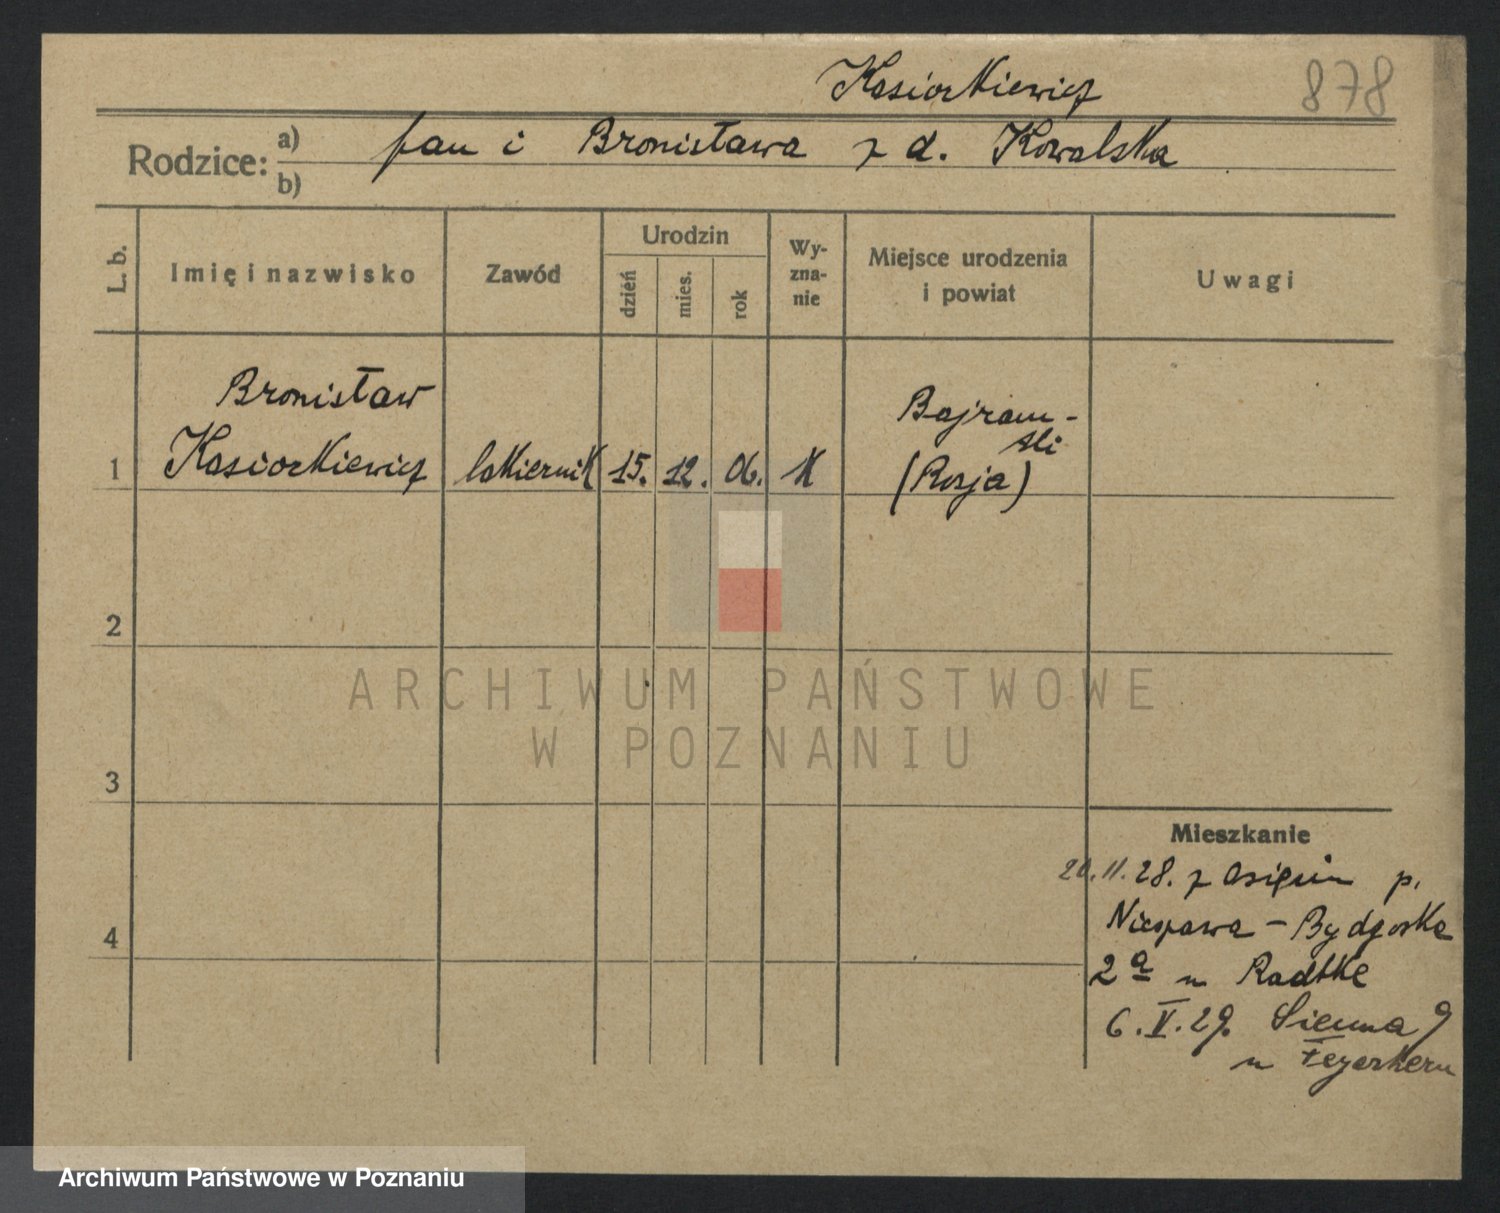 Kasiorkiewicz
878
Rodzice:
a) Jan i Bronisława z d. Kowalska
b)
L. b.
Imię i nazwisko
Zawód
Urodzin
dzień
mies.
rok
Wy-
zna-
nie
Miejsce urodzenia
i powiat
Uwagi
1
Bronisław
Kasiorkiewicz
lakiernik
15.
12.
06.
K
Bajram-
(Rosja)
2
3
4
ARCHIWUM PAŃSTWOWE
W POZNANIU
Mieszkanie
.11.28. z p.
Nieszawa - Bydgoska
2a u Radtke
6.V.29. Sienna 9
u
Archiwum Państwowe w Poznaniu